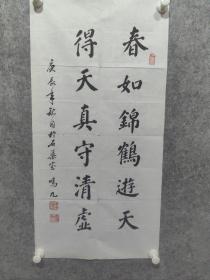 春如錦鶴遊天
得天真守清虛
庚辰年秋月於石
鳴九